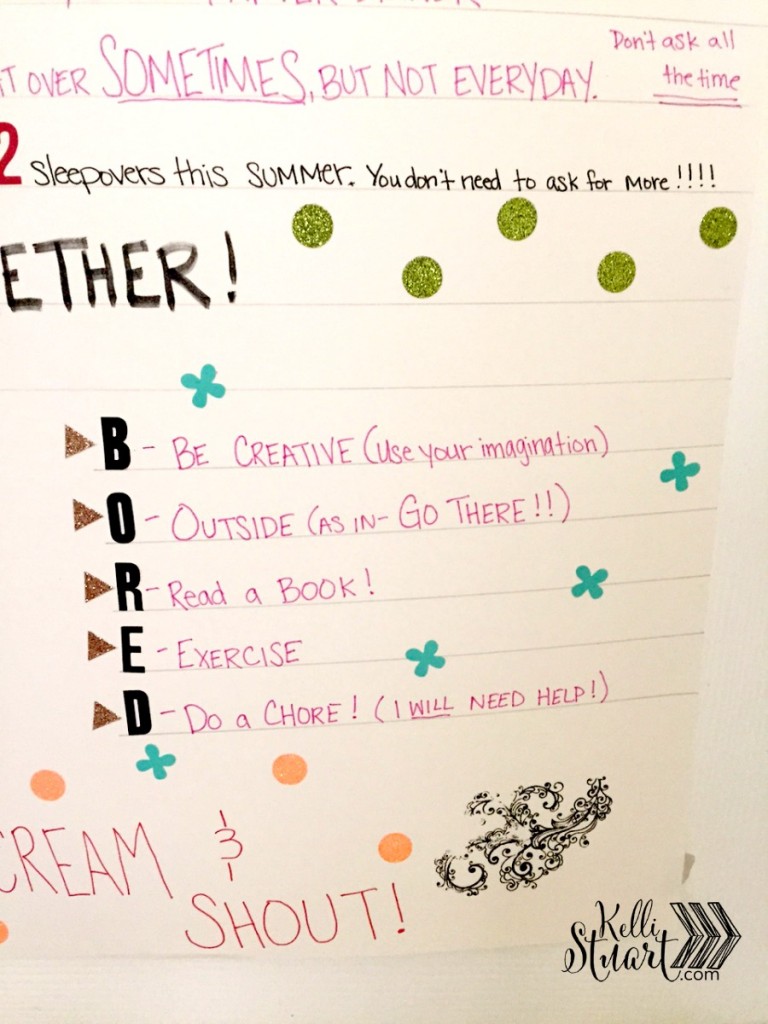 Don't ask all
the time
OVER SOMETIMES, BUT NOT EVERYDAY.
2 Sleepovers this SUMMER. You don't need to ask for more!!!!
ETHER!
B - BE CREATIVE (Use your imagination)
O - OUTSIDE (AS IN - GO THERE!!)
R - Read a BOOK!
E - EXERCISE
D - Do a CHORE! (I WILL NEED HELP!)
CREAM &
SHOUT!
Kelli
Stuart
.com